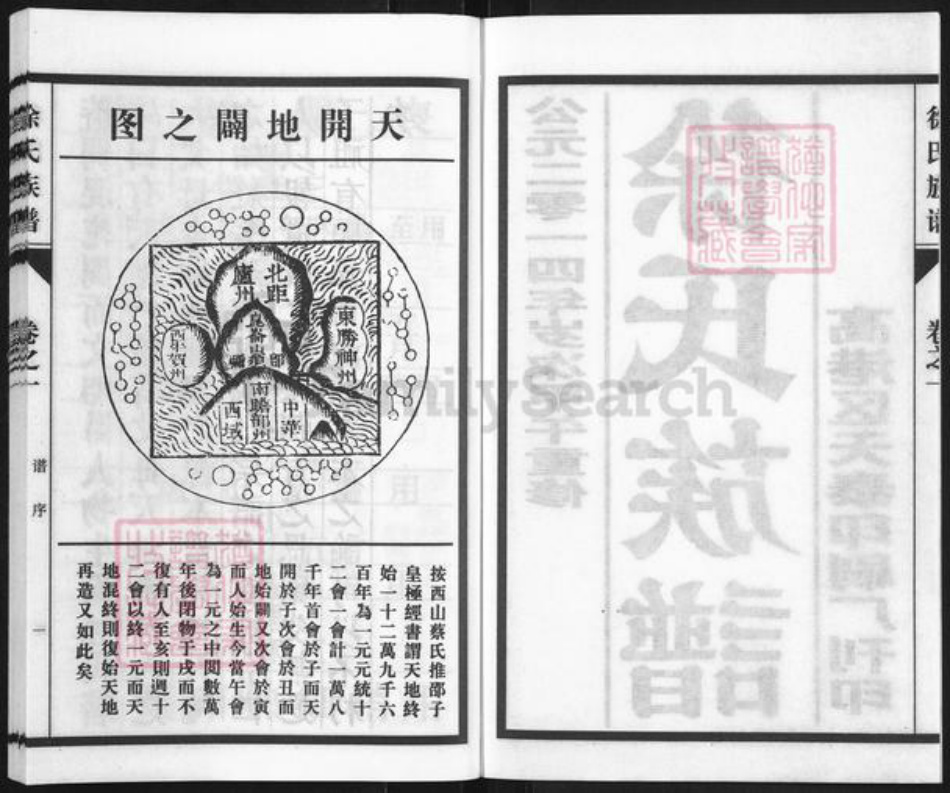 徐氏族谱
卷之一
公元二零一四年岁次甲午重修
徐氏族譜
高港区天泰印刷厂刊印
天開地闢之图
北距
廬州
東勝神州
崑崙山
西年賀州
南贍部州
中華
西域
按西山蔡氏推邵子
皇極經書謂天地終
始一十二萬九千六
百年為一元元統十
二會一會計一萬八
千年首會於子而天
開於子次會於丑而
地始闢又次會於寅
而人始生今當午會
為一元之中閱數萬
年後閉物于戌而不
復有人至亥則週十
二會以終一元而天
地混終則復始天地
再造又如此矣
徐氏族譜
卷之一
谱序
一
FamilySearch